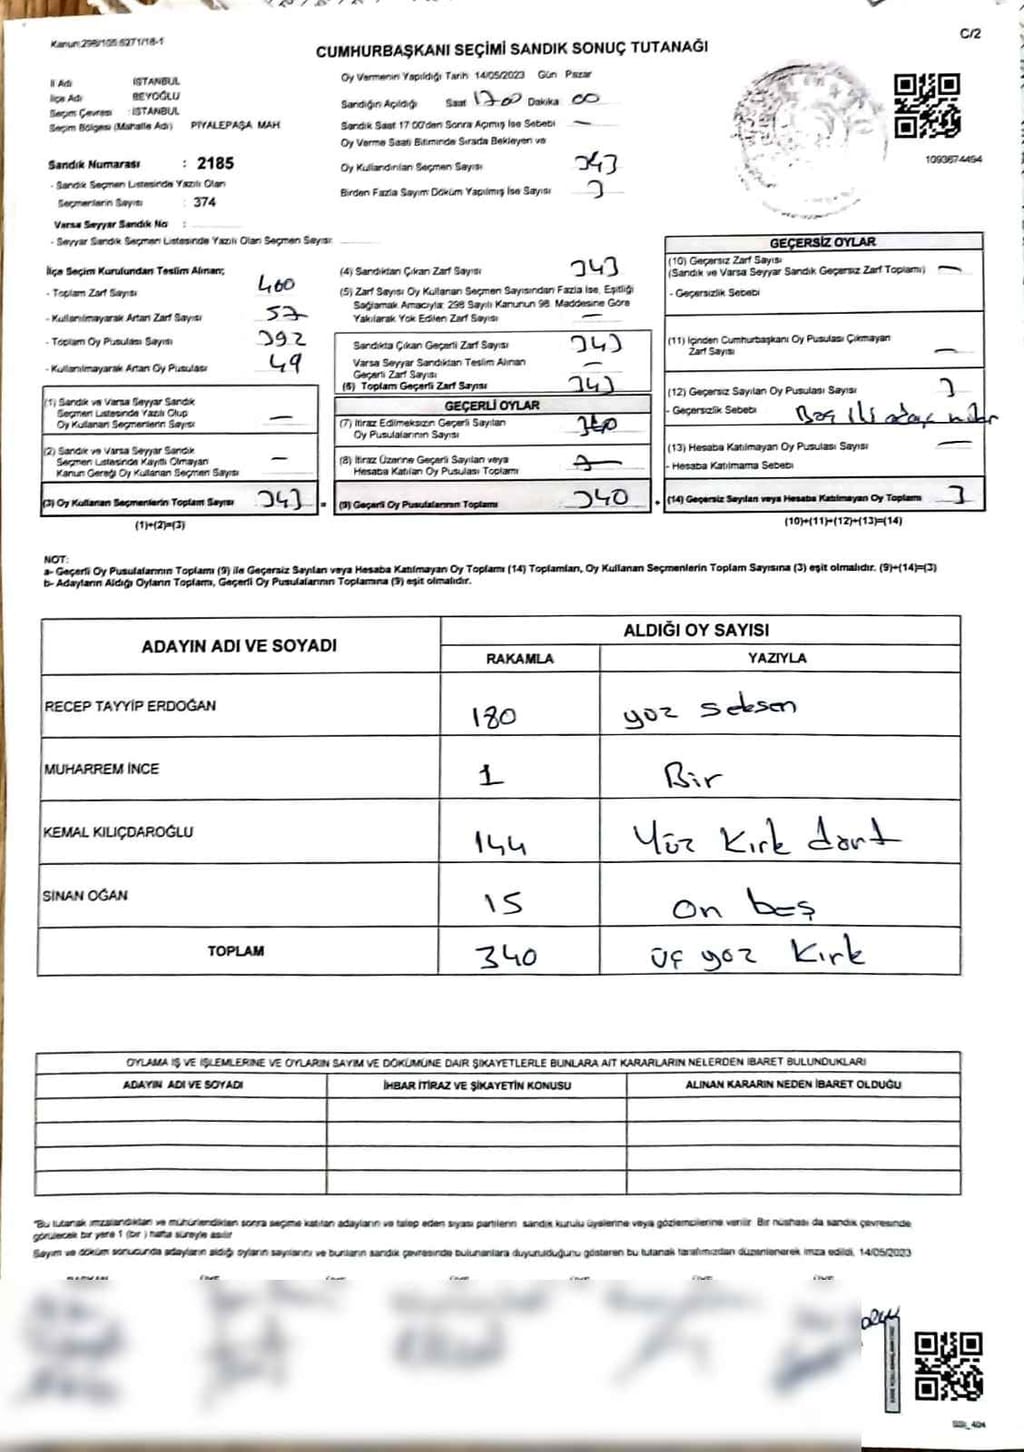 Kanun:298/105:6271/18-1
C/2
CUMHURBAŞKANI SEÇİMİ SANDIK SONUÇ TUTANAĞI
İl Adı : İSTANBUL
İlçe Adı : BEYOĞLU
Seçim Çevresi : İSTANBUL
Seçim Bölgesi (Mahalle Adı) : PİYALEPAŞA MAH
Sandık Numarası : 2185
- Sandık Seçmen Listesinde Yazılı Olan
Seçmenlerin Sayısı : 374
Varsa Seyyar Sandık No :
- Seyyar Sandık Seçmen Listesinde Yazılı Olan Seçmen Sayısı:
Oy Vermenin Yapıldığı Tarih 14/05/2023 Gün Pazar
Sandığın Açıldığı Saat 17 00 Dakika 00
Sandık Saat 17:00'den Sonra Açımış İse Sebebi —
Oy Verme Saati Bitiminde Sırada Bekleyen ve
Oy Kullandırılan Seçmen Sayısı 343
Birden Fazla Sayım Döküm Yapılmış İse Sayısı
1093674494
İlçe Seçim Kurulundan Teslim Alınan;
- Toplam Zarf Sayısı 400
- Kullanılmayarak Artan Zarf Sayısı 57
- Toplam Oy Pusulası Sayısı 392
- Kullanılmayarak Artan Oy Pusulası 49
(1) Sandık ve Varsa Seyyar Sandık
Seçmen Listesinde Yazılı Olup
Oy Kullanan Seçmenlerin Sayısı —
(2) Sandık ve Varsa Seyyar Sandık
Seçmen Listesinde Kayıtlı Olmayan
Kanun Gereği Oy Kullanan Seçmen Sayısı —
(3) Oy Kullanan Seçmenlerin Toplam Sayısı 343
(1)+(2)=(3)
(4) Sandıktan Çıkan Zarf Sayısı 343
(5) Zarf Sayısı Oy Kullanan Seçmen Sayısından Fazla İse, Eşitliği
Sağlamak Amacıyla; 298 Sayılı Kanunun 98. Maddesine Göre
Yakılarak Yok Edilen Zarf Sayısı —
Sandıkta Çıkan Geçerli Zarf Sayısı 343
Varsa Seyyar Sandıktan Teslim Alınan
Geçerli Zarf Sayısı —
(6) Toplam Geçerli Zarf Sayısı 343
GEÇERLİ OYLAR
(7) İtiraz Edilmeksizin Geçerli Sayılan
Oy Pusulalarının Sayısı 340
(8) İtiraz Üzerine Geçerli Sayılan veya
Hesaba Katılan Oy Pusulası Toplamı
= (9) Geçerli Oy Pusulalarının Toplamı 340
GEÇERSİZ OYLAR
(10) Geçersiz Zarf Sayısı
(Sandık ve Varsa Seyyar Sandık Geçersiz Zarf Toplamı) —
- Geçersizlik Sebebi
(11) İçinden Cumhurbaşkanı Oy Pusulası Çıkmayan
Zarf Sayısı —
(12) Geçersiz Sayılan Oy Pusulası Sayısı 3
- Geçersizlik Sebebi
(13) Hesaba Katılmayan Oy Pusulası Sayısı —
- Hesaba Katılmama Sebebi
+ (14) Geçersiz Sayılan veya Hesaba Katılmayan Oy Toplamı 3
(10)+(11)+(12)+(13)=(14)
NOT:
a- Geçerli Oy Pusulalarının Toplamı (9) ile Geçersiz Sayılan veya Hesaba Katılmayan Oy Toplamı (14) Toplamları, Oy Kullanan Seçmenlerin Toplam Sayısına (3) eşit olmalıdır. (9)+(14)=(3)
b- Adayların Aldığı Oyların Toplamı, Geçerli Oy Pusulalarının Toplamına (9) eşit olmalıdır.
ADAYIN ADI VE SOYADI
ALDIĞI OY SAYISI
RAKAMLA YAZIYLA
RECEP TAYYİP ERDOĞAN 180 yüz seksen
MUHARREM İNCE 1 Bir
KEMAL KILIÇDAROĞLU 144 Yüz kırk dört
SİNAN OĞAN 15 on beş
TOPLAM 340 üç yüz kırk
OYLAMA İŞ VE İŞLEMLERİNE VE OYLARIN SAYIM VE DÖKÜMÜNE DAİR ŞİKAYETLERLE BUNLARA AİT KARARLARIN NELERDEN İBARET BULUNDUKLARI
ADAYIN ADI VE SOYADI İHBAR İTİRAZ VE ŞİKAYETİN KONUSU ALINAN KARARIN NEDEN İBARET OLDUĞU
"Bu tutanak imzalandıktan ve mühürlendikten sonra seçime katılan adayların ve talep eden siyasi partilerin sandık kurulu üyelerine veya gözlemcilerine verilir. Bir nüshası da sandık çevresinde
görülecek bir yere 1 (bir) hafta süreyle asılır
Sayım ve döküm sonucunda adayların aldığı oyların sayılarını ve bunların sandık çevresinde bulunanlara duyurulduğunu gösteren bu tutanak tarafımızdan düzenlenerek imza edildi, 14/05/2023